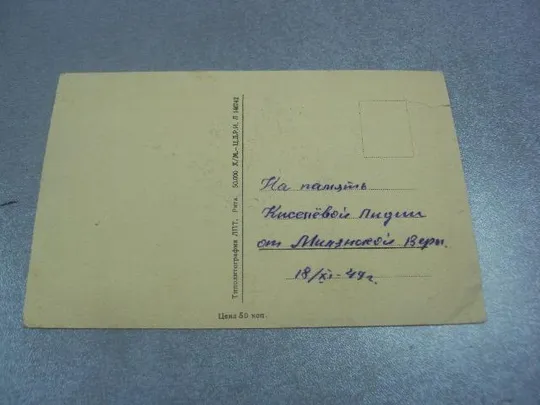 На память
Киселёвой Лидии
от Милянской Веры.
18/XI-49г.
Типолитография ЛПТ, Рига. 50.000 Х/М.-Ц.Д.Р.И. Л
Цена 50 коп.